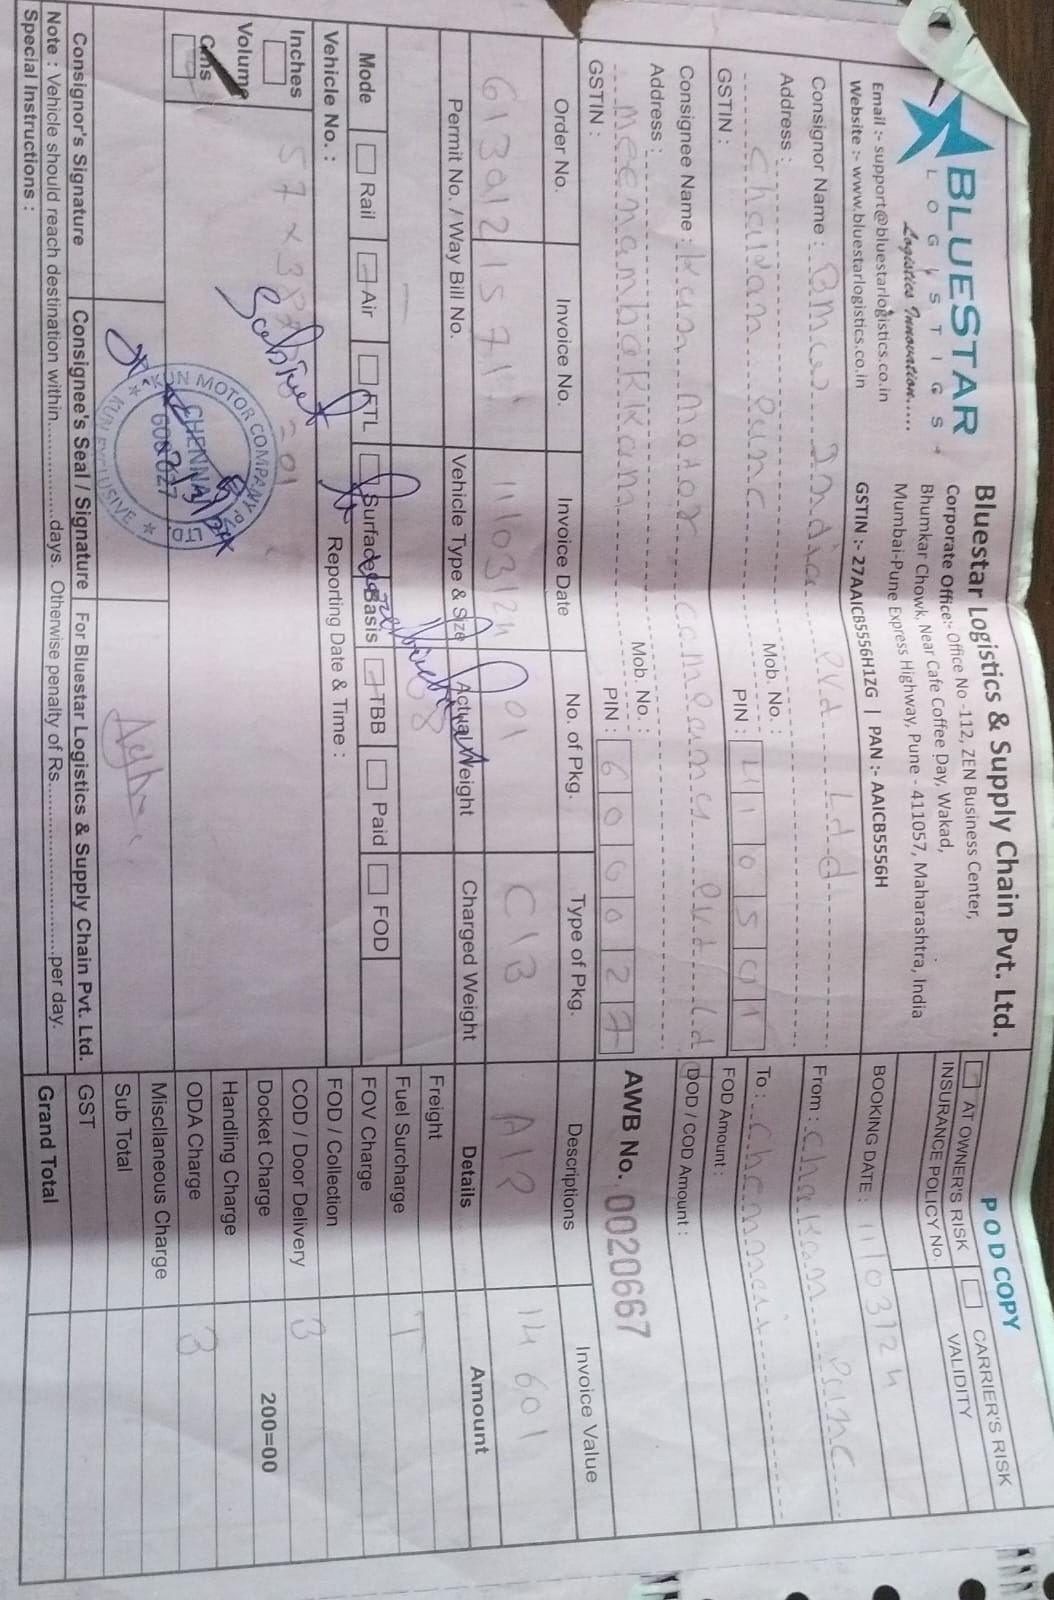 BLUESTAR
LOGISTICS
Logistics Innovation.....
Email :- support@bluestarlogistics.co.in
Website :- www.bluestarlogistics.co.in
Bluestar Logistics & Supply Chain Pvt. Ltd.
Corporate Office:- Office No -112, ZEN Business Center,
Bhumkar Chowk, Near Cafe Coffee Day, Wakad,
Mumbai-Pune Express Highway, Pune - 411057, Maharashtra, India
GSTIN :- 27AAICB5556H1ZG | PAN :- AAICB5556H
POD COPY
AT OWNER'S RISK CARRIER'S RISK
INSURANCE POLICY No. VALIDITY
BOOKING DATE : 11/03/24
From : Chakan Pune
To : Chennai
FOD Amount :
DOD / COD Amount :
AWB No. 0020667
Consignor Name : Bmw India Pvt Ltd
Address :
Chakan Pune
Mob. No. :
PIN : 410501
GSTIN :
Consignee Name : Kun motor company Pvt Ltd
Address :
meenambakkam
Mob. No. :
PIN : 600027
GSTIN :
Order No. Invoice No. Invoice Date No. of Pkg. Type of Pkg. Descriptions Invoice Value
11/03/24 01 C/B 14601
Permit No. / Way Bill No. Vehicle Type & Size Actual Weight Charged Weight Details Amount
Freight
Fuel Surcharge
FOV Charge
FOD / Collection
COD / Door Delivery
Docket Charge 200=00
Handling Charge
ODA Charge
Miscllaneous Charge
Sub Total
GST
Grand Total
Mode Rail Air FTL Surface Basis TBB Paid FOD
Vehicle No. : Reporting Date & Time :
Inches
Volume
Cms
57 x = 01
KUN MOTOR COMPANY PVT LTD.
CHENNAI
600 027
KUN EXCLUSIVE
Consignor's Signature Consignee's Seal / Signature For Bluestar Logistics & Supply Chain Pvt. Ltd.
Note : Vehicle should reach destination within.................days. Otherwise penalty of Rs.............................per day.
Special Instructions :